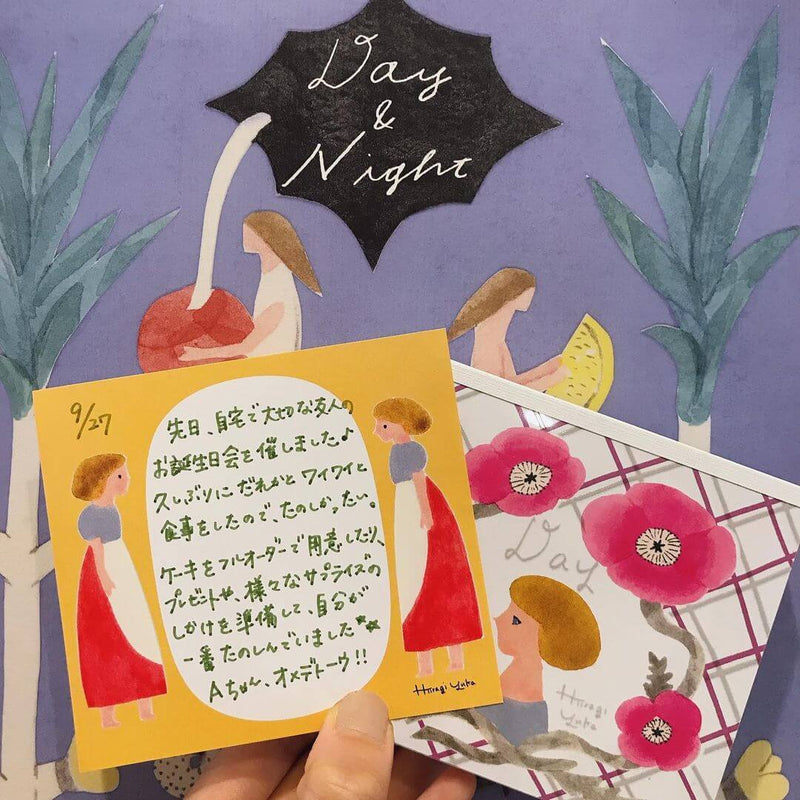 Day
&
Night
9/27
先日、自宅で大切な友人の
お誕生日会を催しました♪
久しぶりにだれかとワイワイと
食事をしたので、たのしかったい。
ケーキをフルオーダーで用意したり、
プレゼントや、様々なサプライズの
しかけを準備して、自分が
一番たのしんでいました
Aちゃん、オメデトーウ!!
Hiiragi Yuka
Day
Hiiragi
Yuka